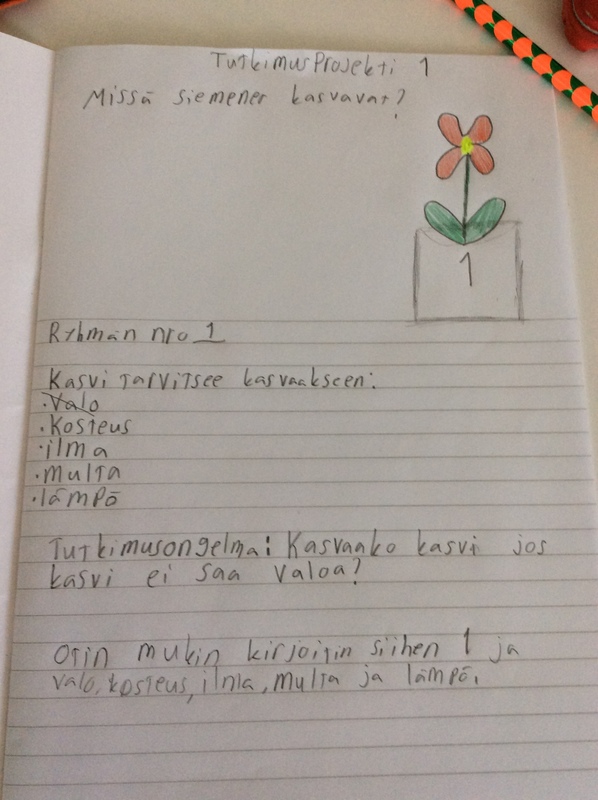 TutkimusProjekti 1
Missä siemenet kasvavat?
1
Ryhmän nro 1
Kasvi tarvitsee kasvaakseen:
•Valo
•Kosteus
•ilma
•multa
•lämpö
Tutkimusongelma: Kasvaako kasvi jos
kasvi ei saa valoa?
Otin mukin kirjoitin siihen 1 ja
valo, kosteus, ilma, multa ja lämpö.